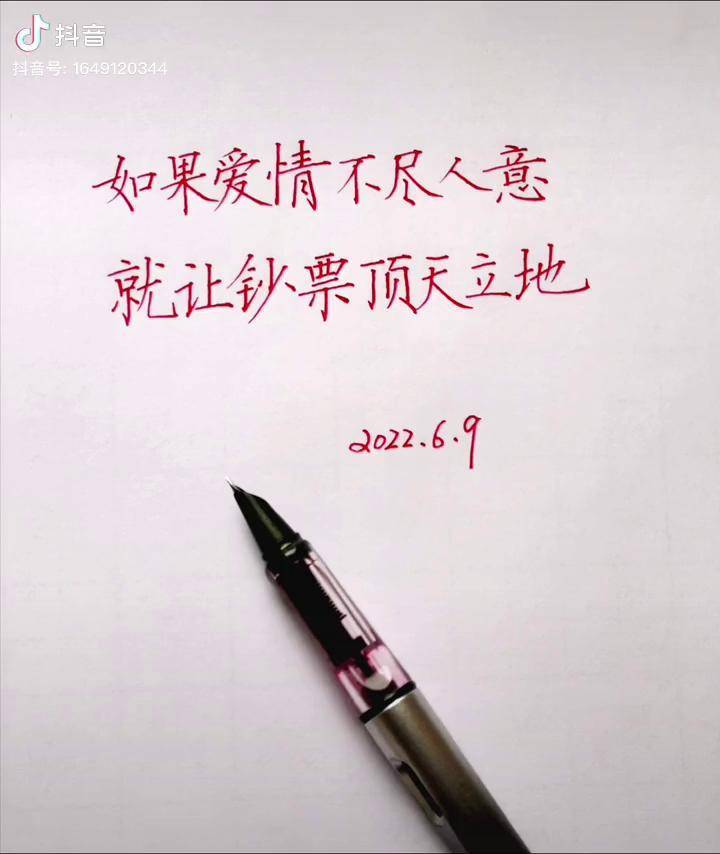 抖音
抖音号: 1649120344
如果爱情不尽人意
就让钞票顶天立地
2022.6.9